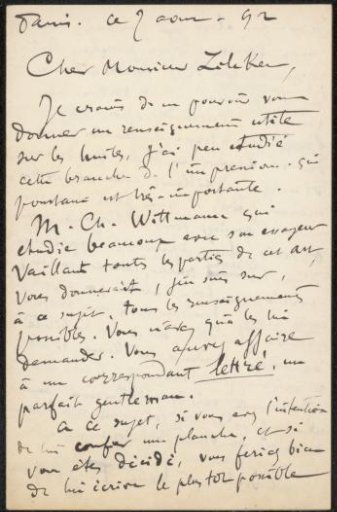 Paris. ce 7 aout. 92
Cher Monsieur Zilcken,
Je crains de ne pouvoir vous
donner un renseignement utile
sur les huiles, j'ai peu étudié
cette branche de l'impression. qui
pourtant est très-importante.
M. Ch. Wittmann qui
etudie beaucoup avec son
Vaillant toutes les parties de cet art,
vous donnerait, j'en suis sur,
à ce sujet, tous les renseignements
possibles. Vous n'avez qu'à les lui
demander. Vous aurez affaire
à un correspondant lettré, un
parfait gentleman.
à ce sujet, si vous avez l'intention
de lui confier une planche, et si
vous êtes décidé, vous feriez bien
de lui écrire le plus tôt possible